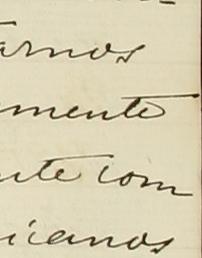 arnos
mente
nte com
icanos